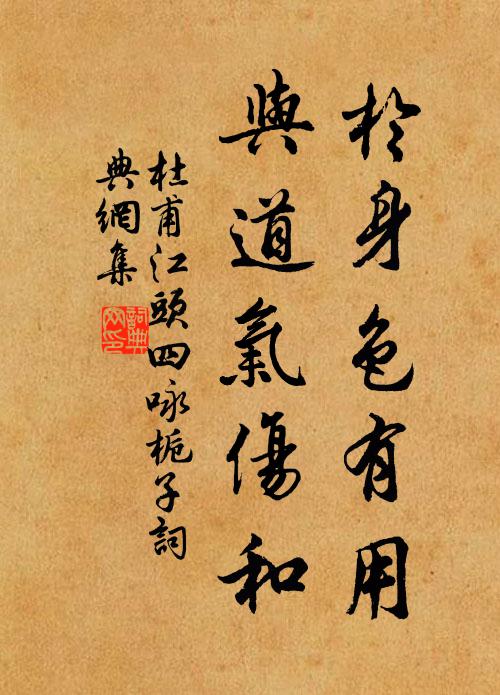 於身色有用
與道氣傷和
杜甫江頭四咏梔子詞
典網集
詞典
网印